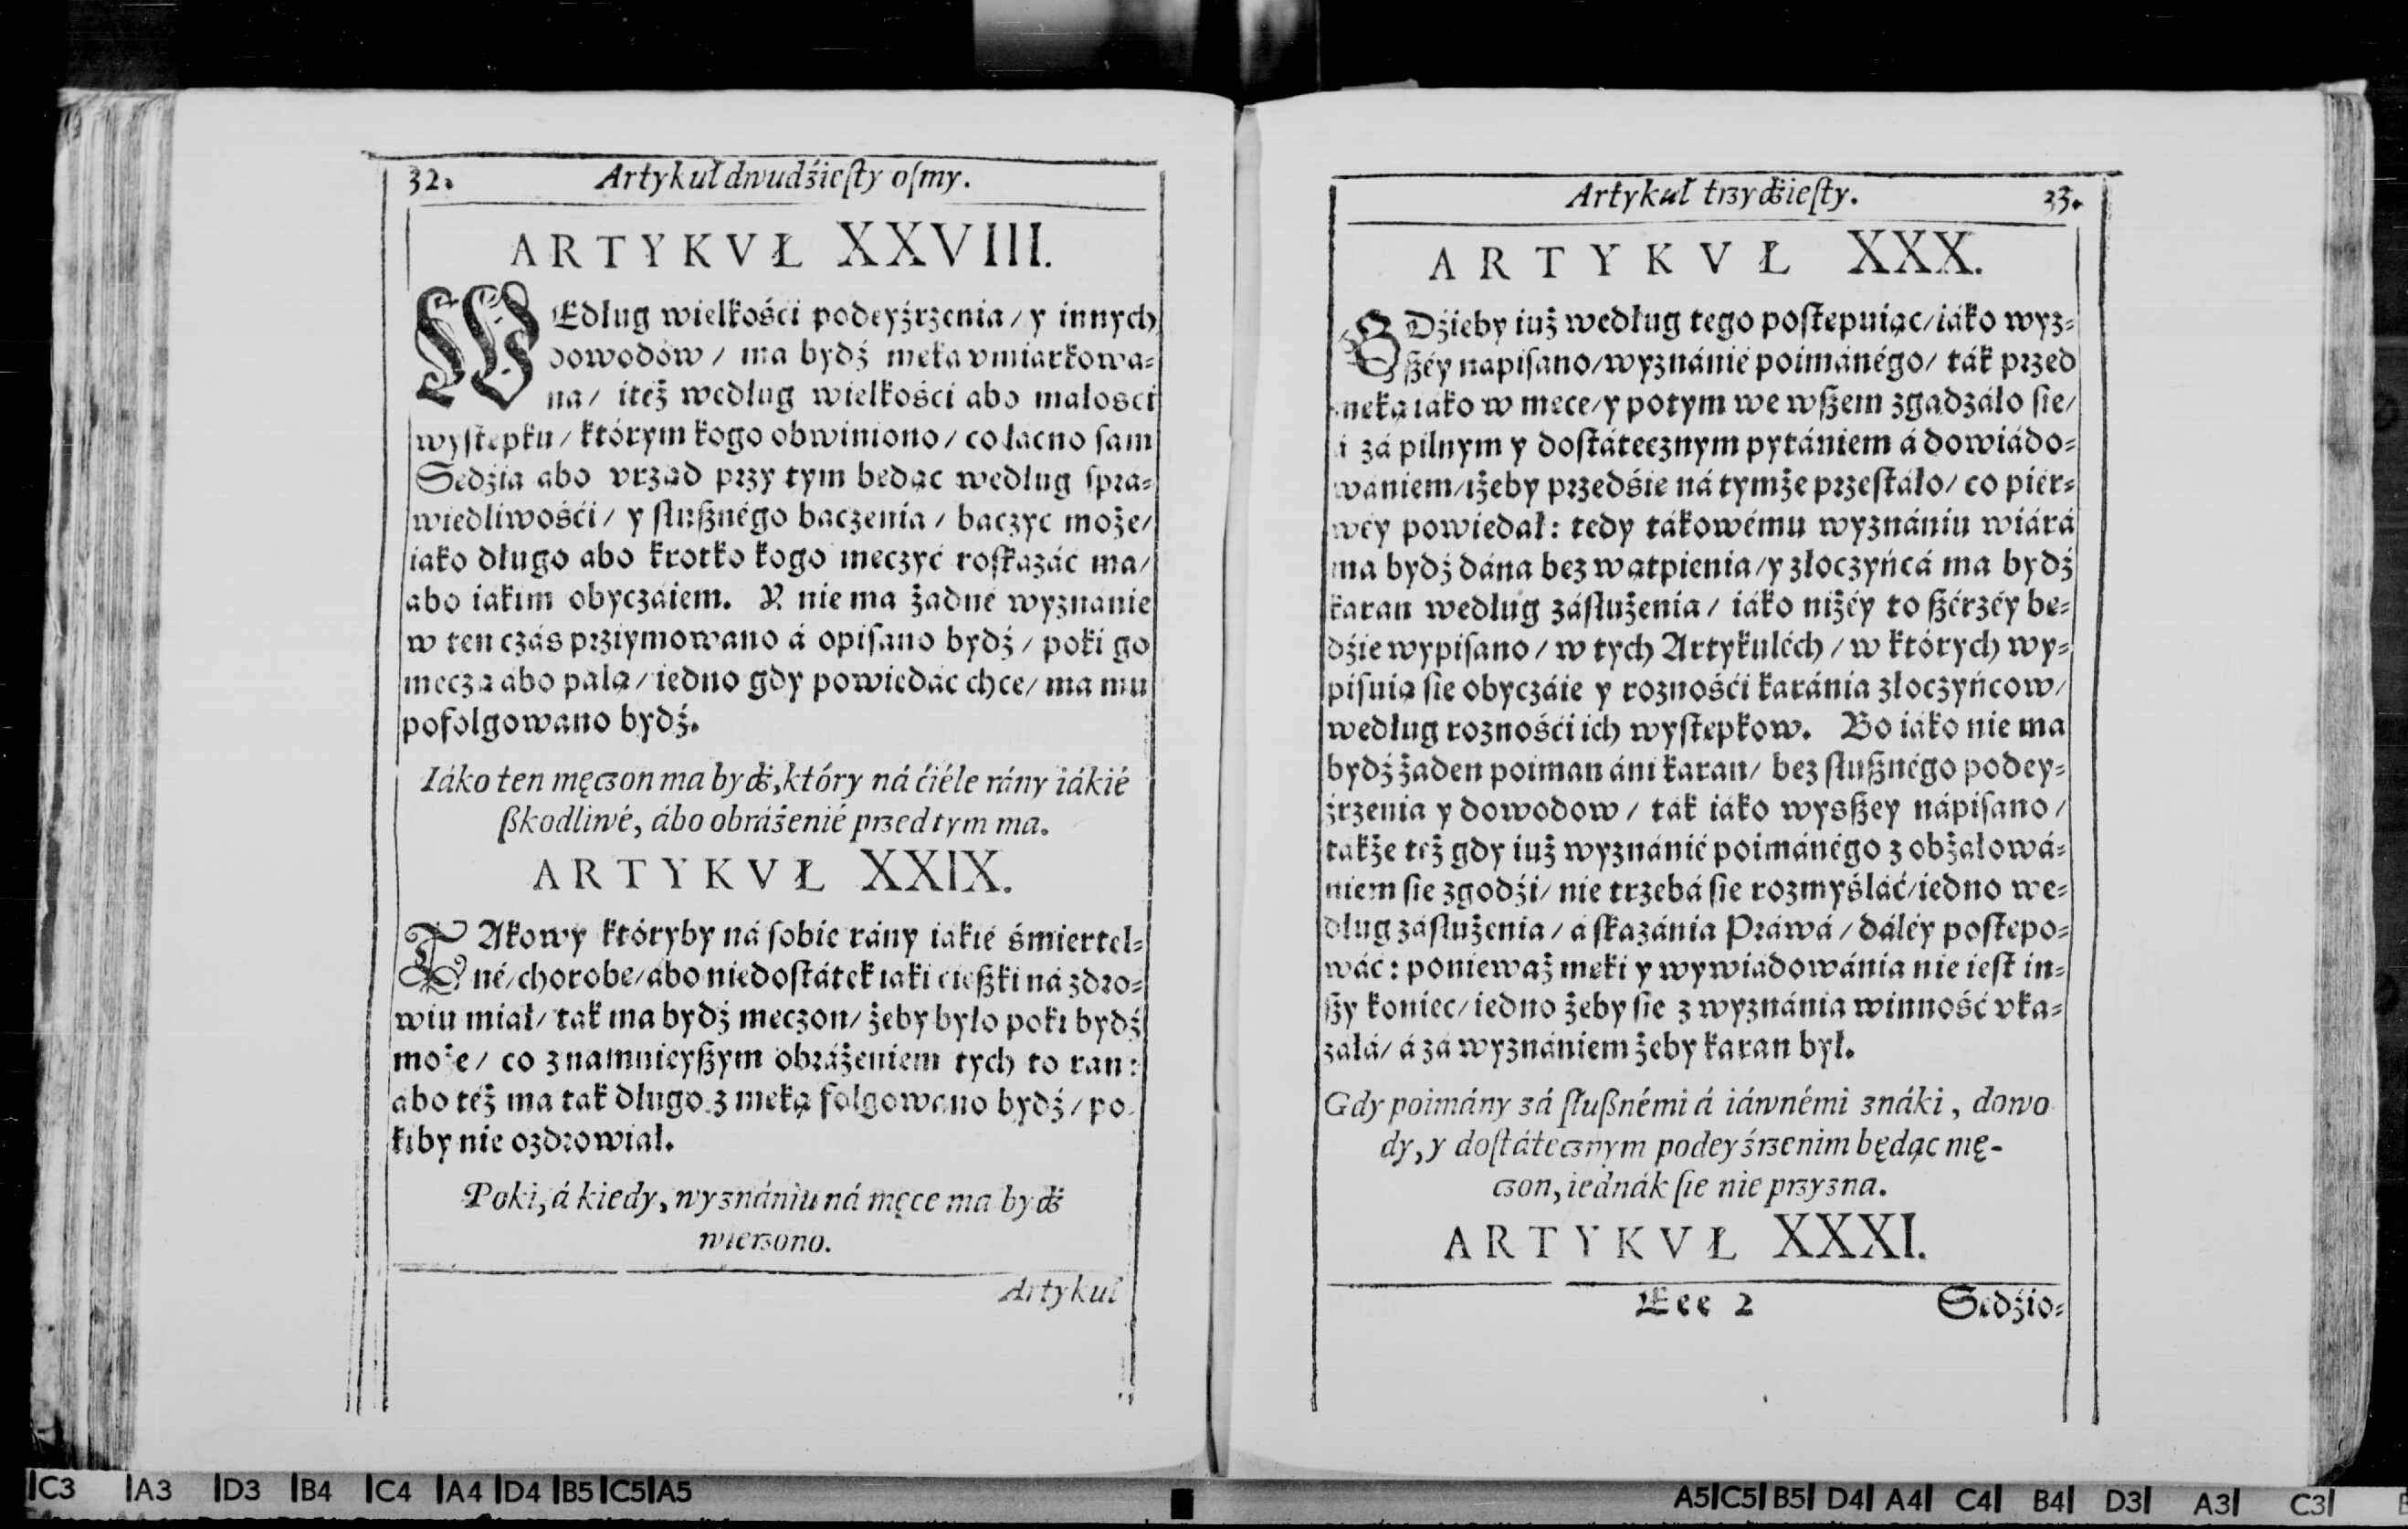 32. Artykuł dwudźieſty oſmy.
ARTYKVŁ XXVIII.
WEdług wielkośći podeyźrzenia / y innych
dowodow / ma bydź męka vmiarkowa=
na / iteż według wielkośći abo małosci
wyſtępku / którym kogo obwiniono / co łacno ſam
Sędźia abo vrząd przy tym będąc według ſpra=
wiedliwośći / y ſłuſznégo baczenia / baczyc może /
iako długo abo krotko kogo męczyć roſkazáć ma /
abo iakim obyczáiem. Y nie ma żadné wyznanie
w ten czás prziymowano á opiſano bydź / poki go
męczą abo palą / iedno gdy powiedác chce / ma mu
pofolgowano bydź.
Iáko ten męczon ma bydź, który ná ćiéle rány iákié
ſzkodliwé, ábo obráżenié przed tym ma.
ARTYKVŁ XXIX.
TAkowy któryby ná ſobie rány iakié śmiertel=
né / chorobę / abo niedoſtátek iaki ćięſzki ná zdro=
wiu miał / tak ma bydź męczon / żeby było poki bydź
może / co z namnieyſzym obráżeniem tych to ran:
abo téż ma tak długo z męką folgowano bydź / po
kiby nie ozdrowiał.
Poki, á kiedy, wyznániu ná męce ma bydź
wierzono.
Artykuł
Artykuł trzydźieſty. 33.
ARTYKVŁ XXX.
GDźieby iuż według tego poſtępuiąc / iáko wyz=
ſzéy napiſano / wyznánié poimánégo / ták przed
męką iako w męce / y potym we wſzem zgadzáło ſie /
á zá pilnym y doſtátecznym pytániem á dowiádo=
waniem / iżeby przedśie ná tymże przeſtáło / co piér=
wéy powiedał: tedy tákowému wyznániu wiárá
ma bydź dána bez wątpienia / y złoczyńcá ma bydź
karan według záſłużenia / iáko niżéy to ſzérzéy bę=
dźie wypiſano / w tych Artykuléch / w których wy=
piſuią ſie obyczáie y roznośći karánia złoczyńcow /
według roznośći ich wyſtępkow. Bo iáko nie ma
bydź żaden poiman áni karan / bez ſłuſznégo podey=
źrzenia y dowodow / tak iáko wysſzey nápiſano /
także też gdy iuż wyznánié poimánégo z obżałowá=
niem ſie zgodźi / nie trzebá ſie rozmyśláć / iedno we=
dług záſłużenia / á ſkazánia Práwá / dáléy poſtępo=
wáć: ponieważ męki y wywiadowánia nie ieſt in=
ſzy koniec / iedno żeby ſie z wyznánia winność vka=
záłá / á zá wyznániem żeby karan był.
Gdy poimány zá ſłuſznémi á iáwnémi znáki, dowo
dy, y doſtátecznym podeyśrzenim będąc mę-
czon, iednák ſie nie przyzna.
ARTYKVŁ XXXI.
Eee 2 Sędźio=
C3 A3 D3 B4 C4 A4 D4 B5 C5 A5
A5 C5 B5 D4 A4 C4 B4 D3 A3 C3